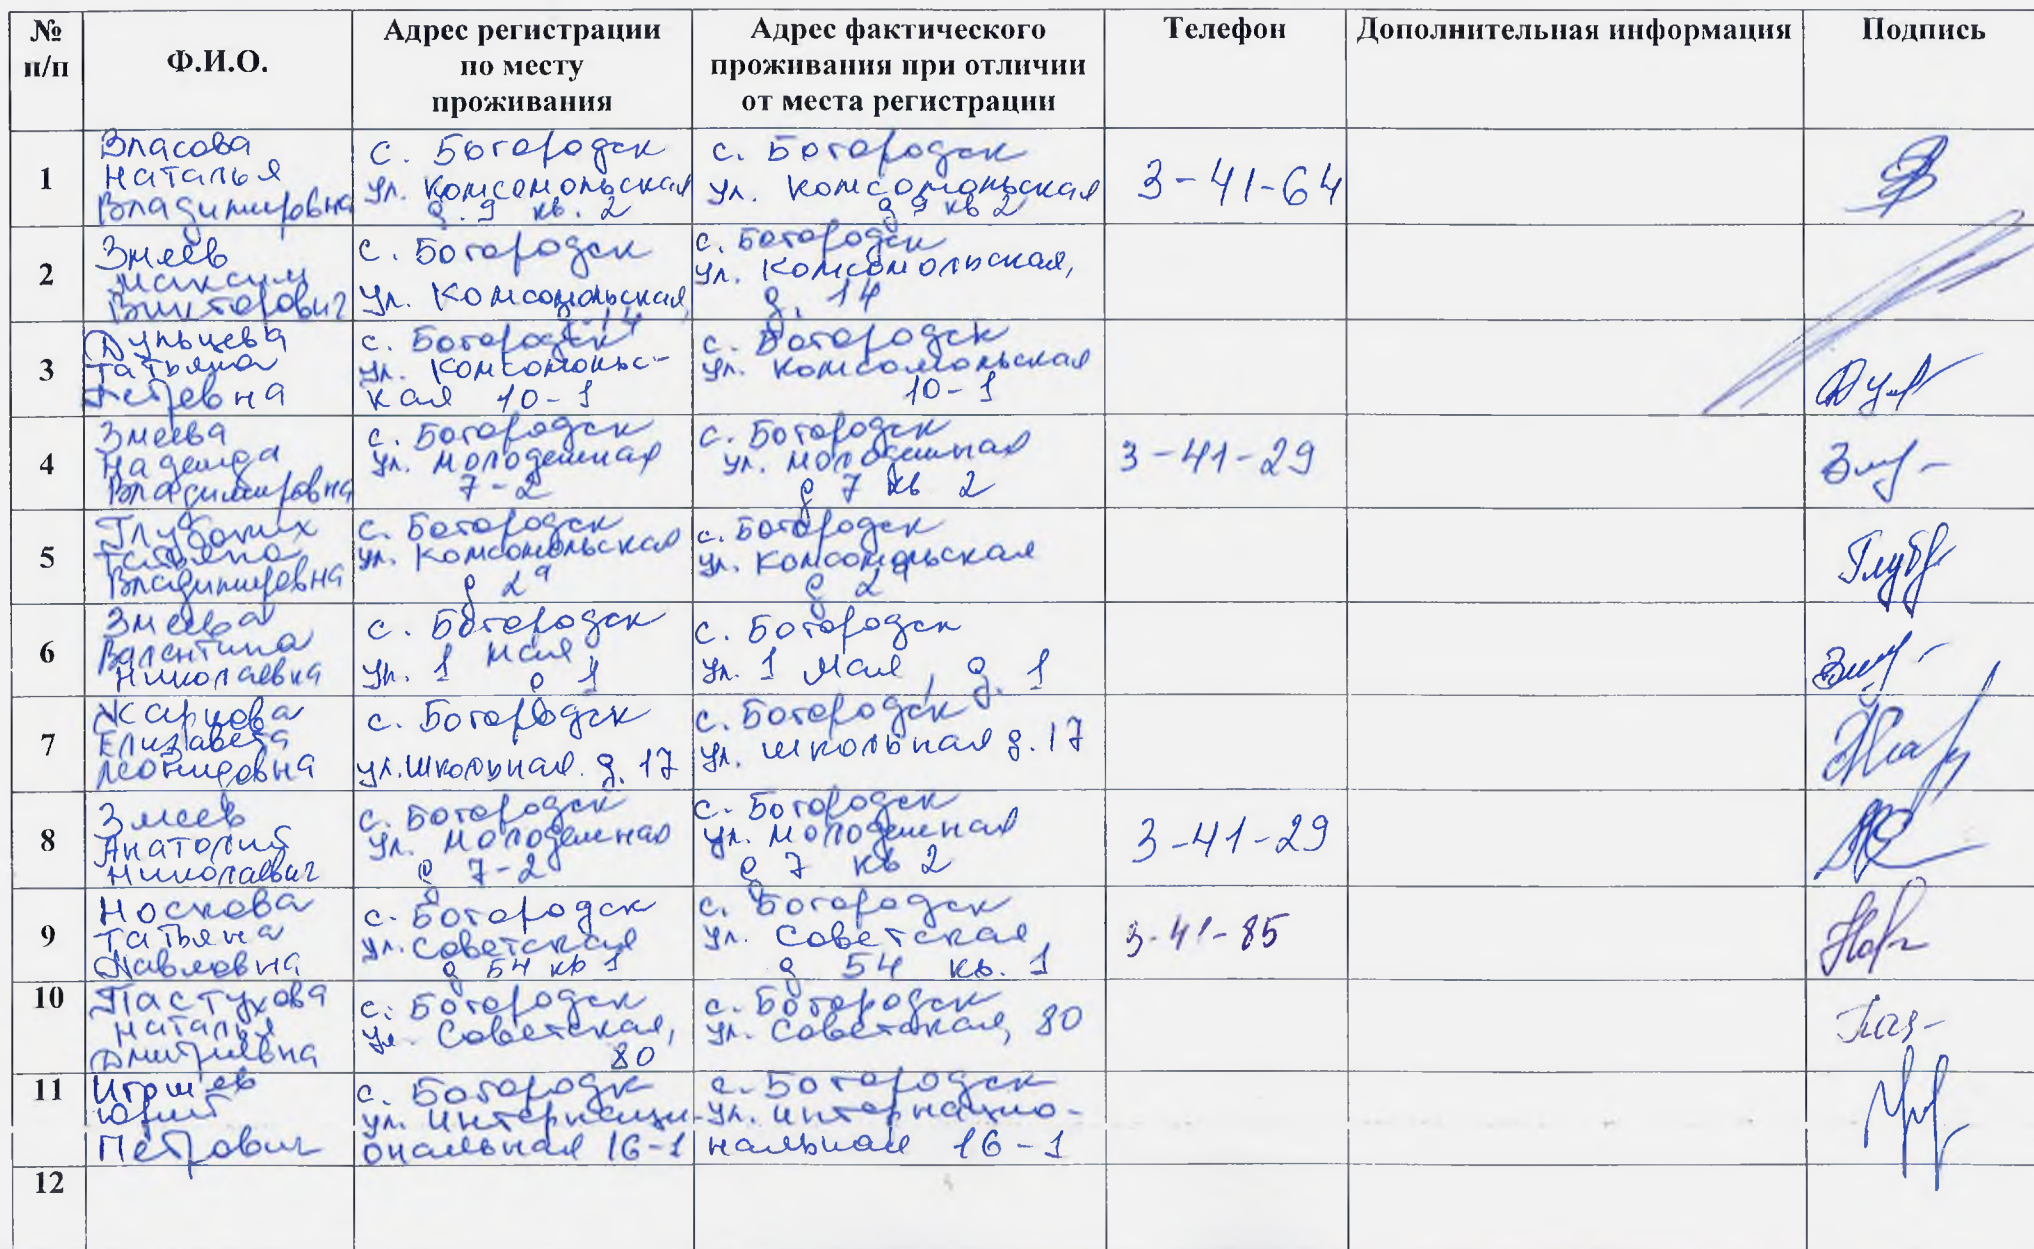 № п/п
Ф.И.О.
Адрес регистрации
по месту
проживания
Адрес фактического
проживания при отличии
от места регистрации
Телефон
Дополнительная информация
Подпись
1
Власова
Наталья
Владимировна
с. Богородск
ул. Комсомольская
д. 9 кв. 2
с. Богородск
ул. Комсомольская
д 9 кв 2
3-41-64
2
Змеев
Максим
Викторович
с. Богородск
ул. Комсомольская,
д. 14
с. Богородск
ул. Комсомольская,
д. 14
3
Дульцева
Татьяна
Петревна
с. Богородск
ул. Комсомольс-
кая 10-1
с. Богородск
ул. Комсомольская
10-1
4
Змеева
Надежда
Владимировна
с. Богородск
ул. Молодежная
7-2
с. Богородск
ул. Молодежная
д 7 кв 2
3-41-29
5
Глубоких
Татьяна
Владимировна
с. Богородск
ул. Комсомольская
д 2а
с. Богородск
ул. Комсомольская
д 2а
6
Змеева
Валентина
Николаевна
с. Богородск
ул. 1 Мая
д 1
с. Богородск
ул. 1 Мая, д. 1
7
Елизавета
Леонидовна
с. Богородск
ул. Школьная. д. 17
с. Богородск
ул. Школьная д. 17
8
Змеев
Анатолий
Николаевич
с. Богородск
ул. Молодежная
д 7-2
с. Богородск
ул. Молодежная
д 7 кв 2
3-41-29
9
Носкова
Татьяна
Павловна
с. Богородск
ул. Советская
д 54 кв 1
с. Богородск
ул. Советская,
д 54 кв. 1
3-41-85
10
Пастухова
Наталья
Дмитриевна
с. Богородск
ул. Советская,
80
с. Богородск
ул. Советская, 80
11
Игошев
Юрий
Петрович
с. Богородск
ул. Интернаци-
ональная 16-1
с. Богородск
ул. Интернацио-
нальная 16-1
12